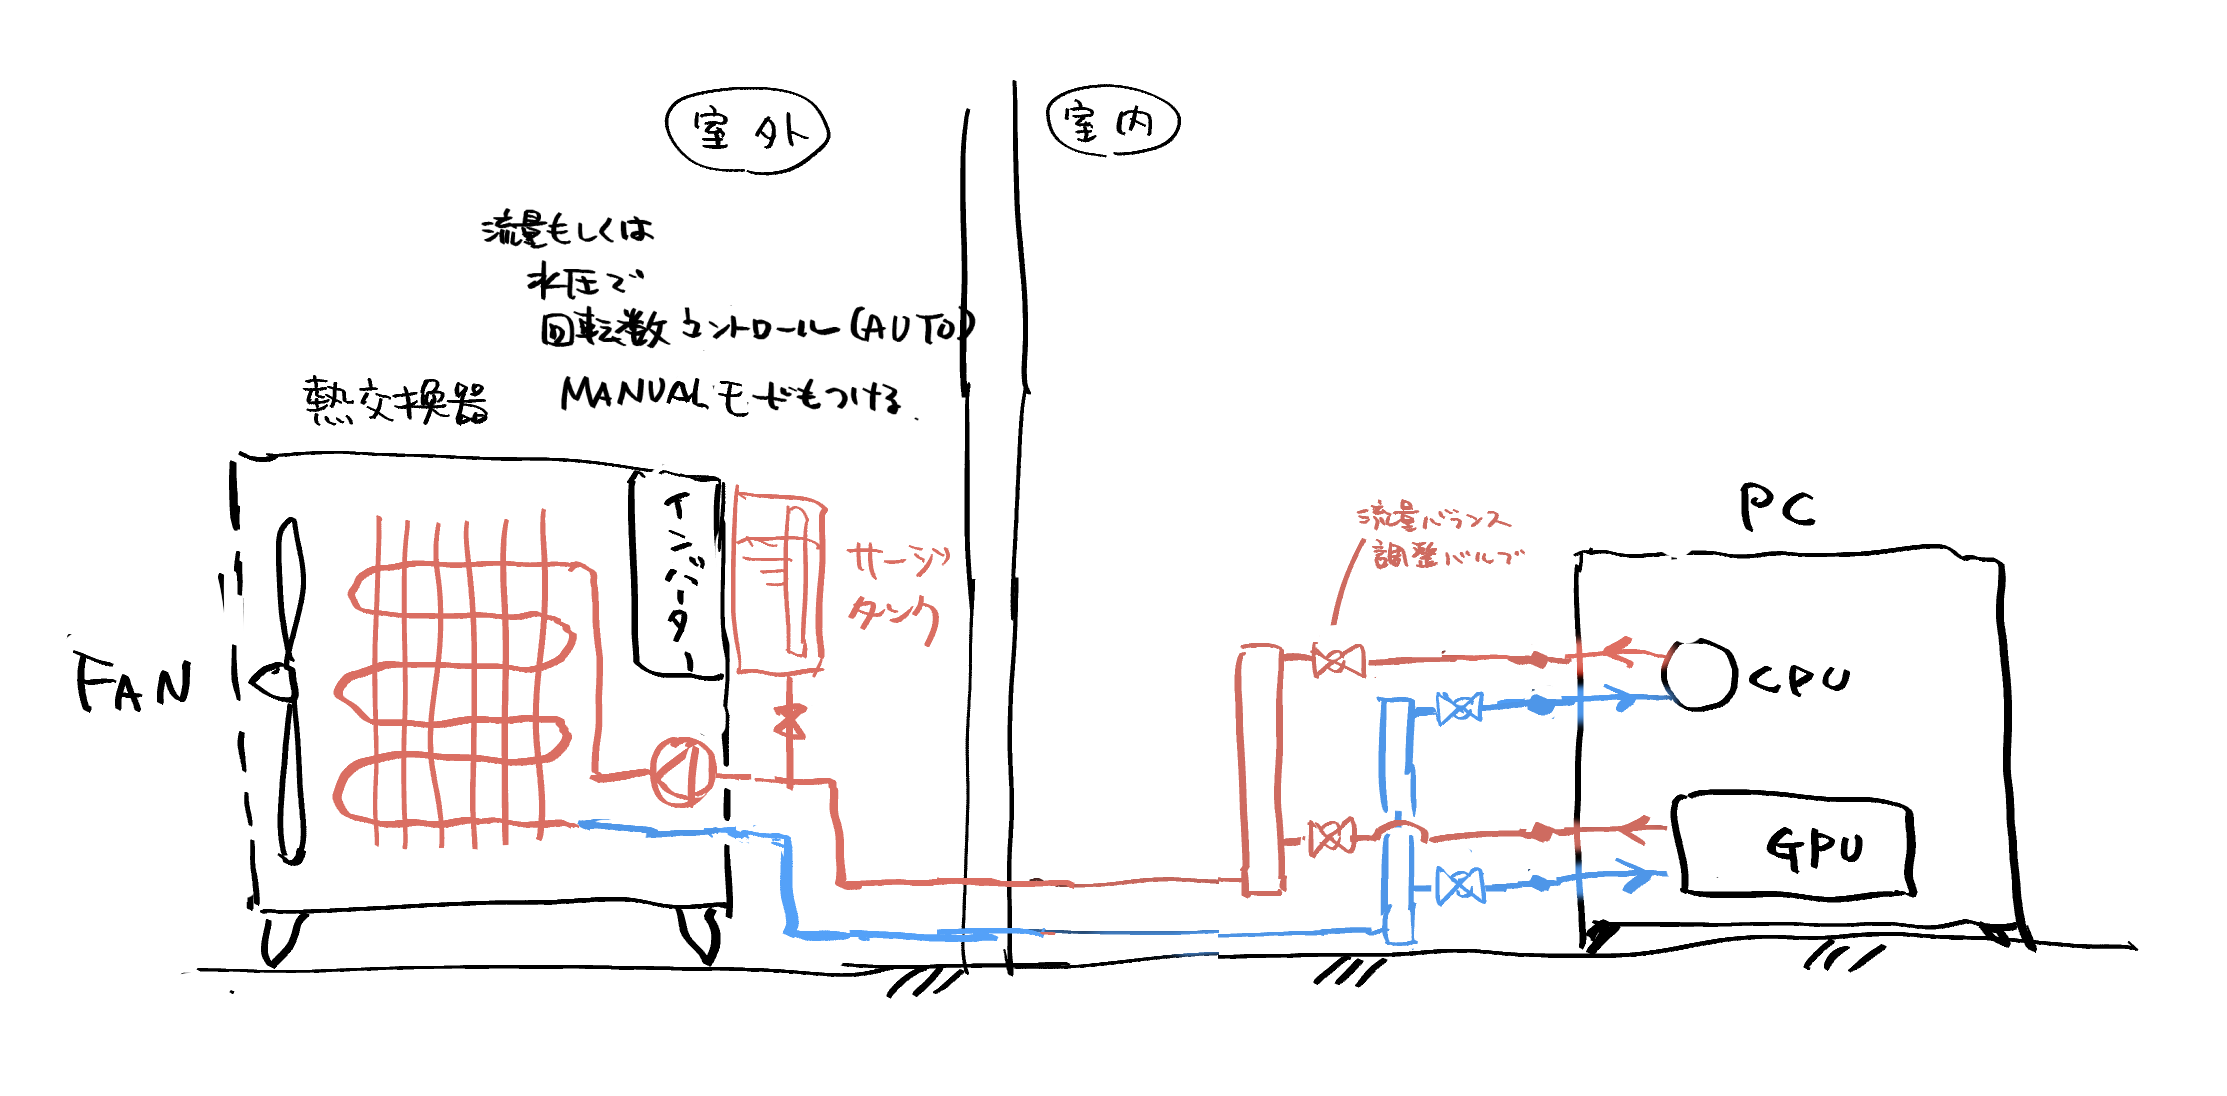 室外
室内
流量もしくは
水圧で
回転数コントロール(AUTO)
MANUALモードもつける
熱交換器
インバーター
サージ
タンク
FAN
流量バランス
調整バルブ
PC
CPU
GPU